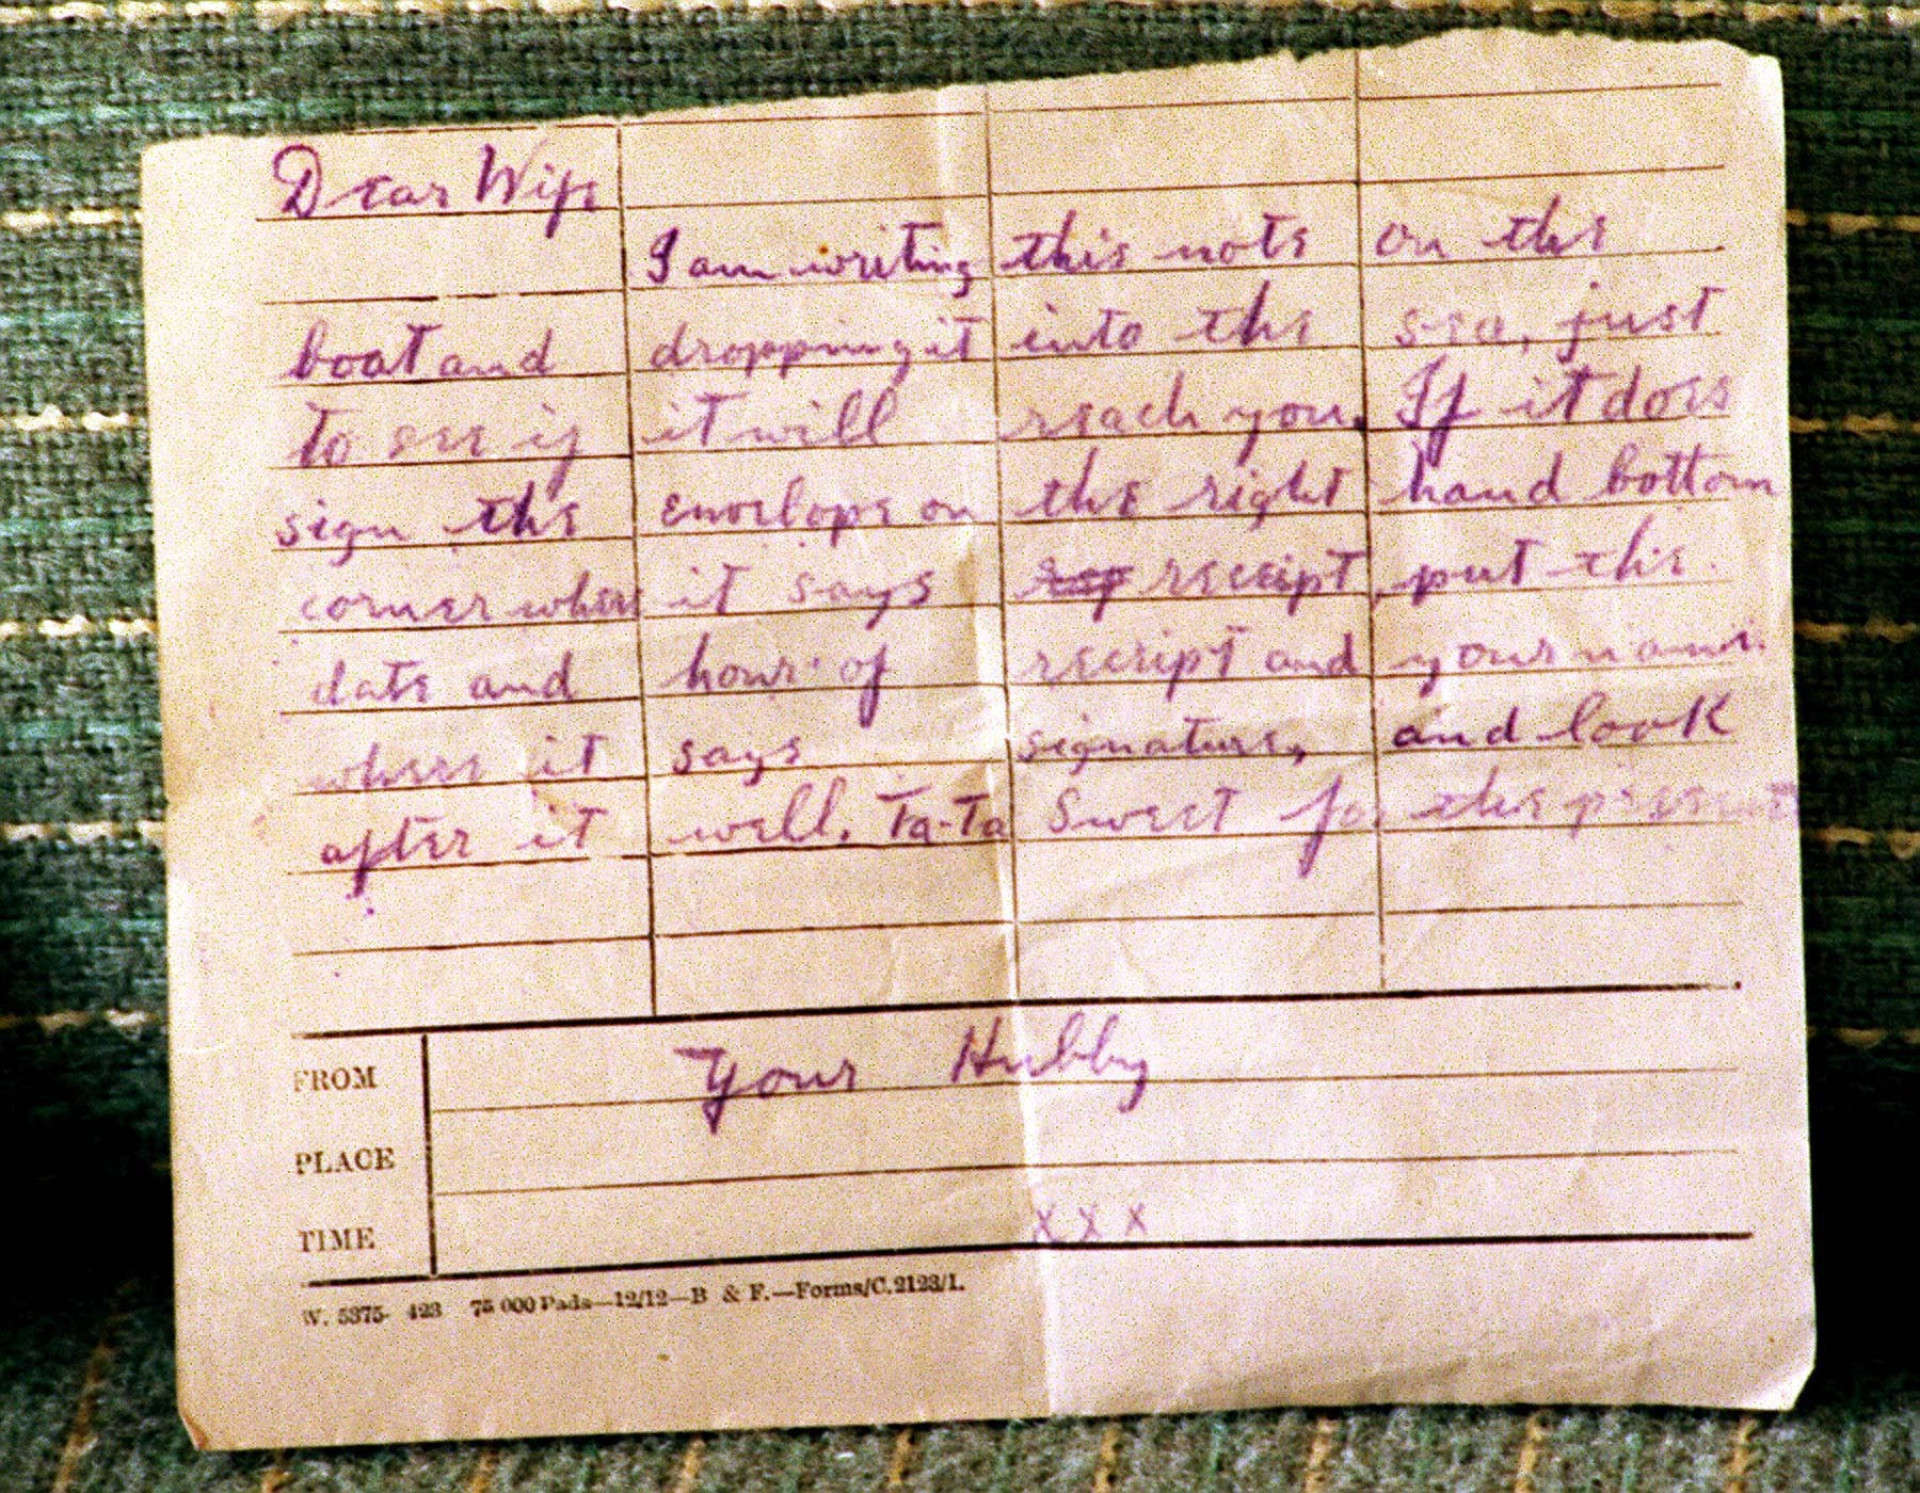 Dear Wife
I am writing this note on the
boat and dropping it into the sea, just
to see if it will reach you. If it does
sign the envelope on the right hand bottom
corner where it says rec receipt, put the
date and hour of receipt and your name
where it says signature, and look
after it well. Ta-Ta Sweet for the present
Your Hubby
FROM
PLACE
TIME
X X X
W. 5375- 423 75 000 Pads—12/12—B & F.—Forms/C.2123/1.